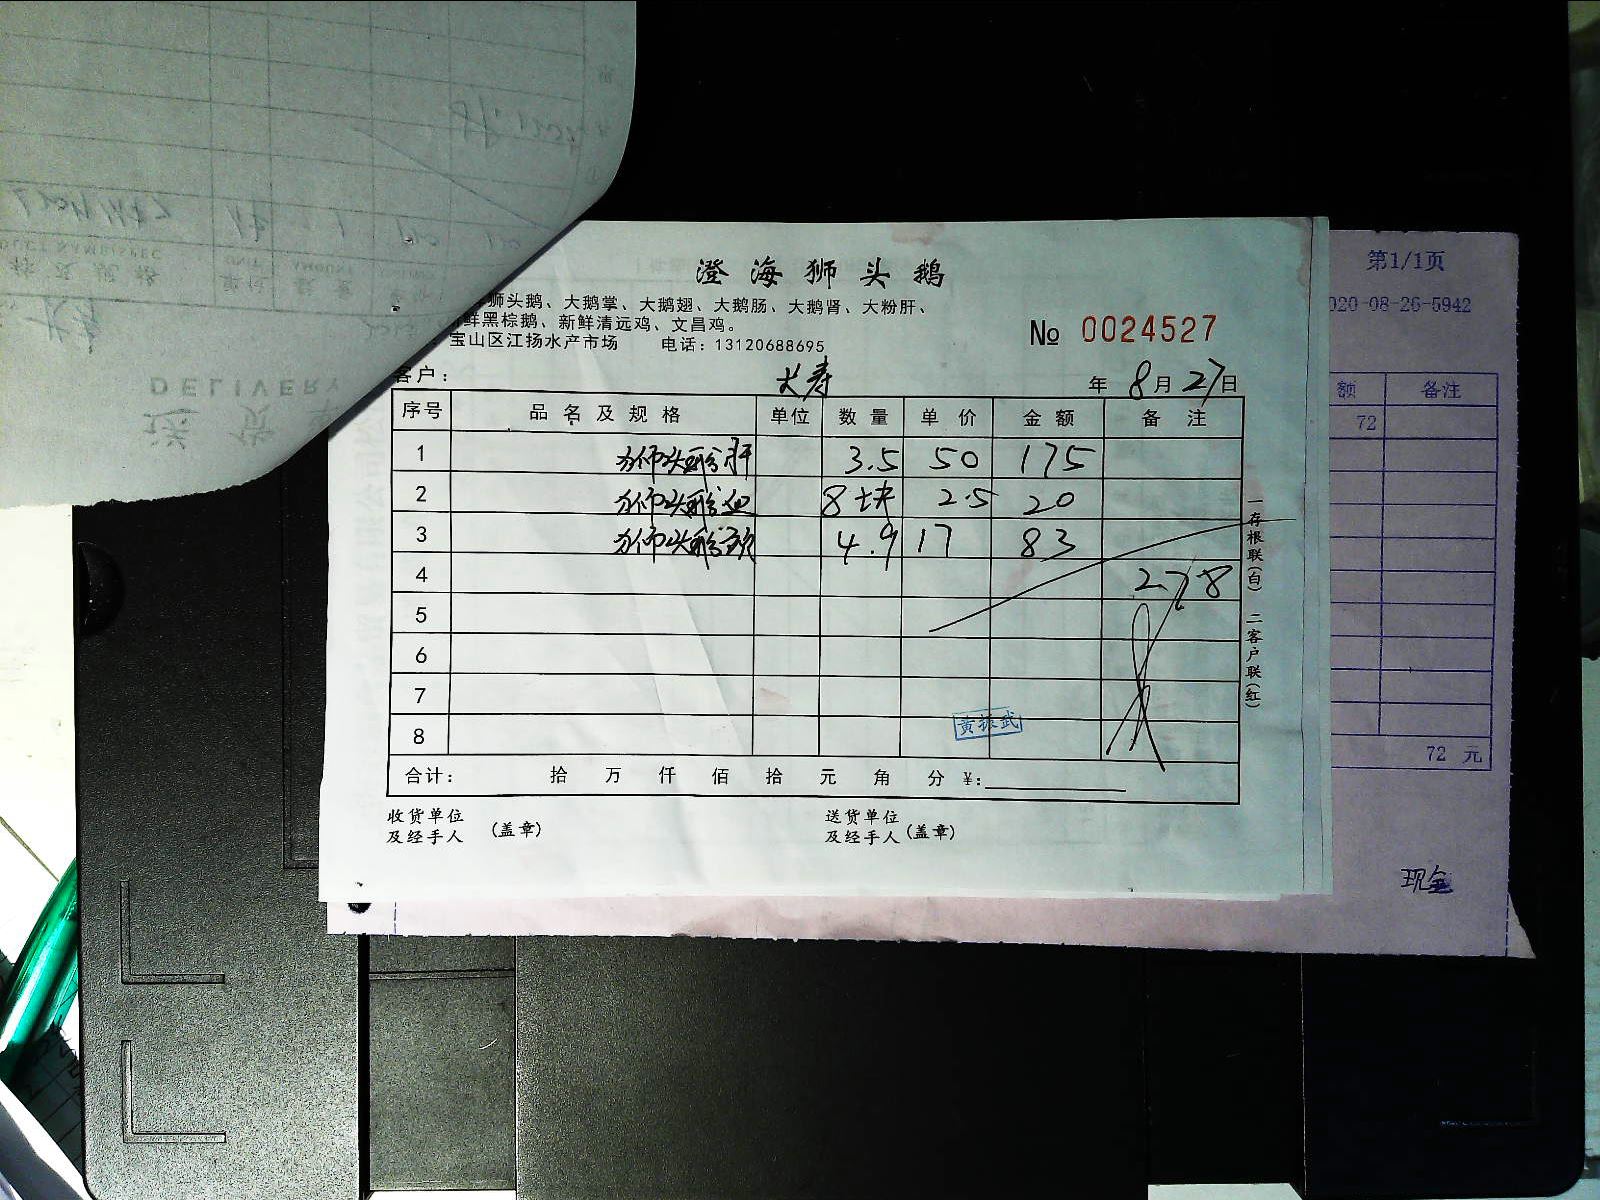 澄海狮头鹅
狮头鹅、大鹅掌、大鹅翅、大鹅肠、大鹅肾、大粉肝、
鲜黑棕鹅、新鲜清远鸡、文昌鸡。
宝山区江扬水产市场 电话：13120688695
№ 0024527
客户： 大寿 年 8月27日
序号 品名及规格 单位 数量 单价 金额 备注
1 狮头鹅肝 3.5 50 175
2 狮头鹅血 8块 2.5 20
3 狮头鹅 4.9 17 83
4 278
5
6
7
8
黄振武
合计： 拾 万 仟 佰 拾 元 角 分 ¥：
收货单位
及经手人 (盖章)
送货单位
及经手人 (盖章)
一存根联(白) 二客户联(红)
第1/1页
020-08-26-5942
额 备注
72
72 元
现金
送货
DELIVERY